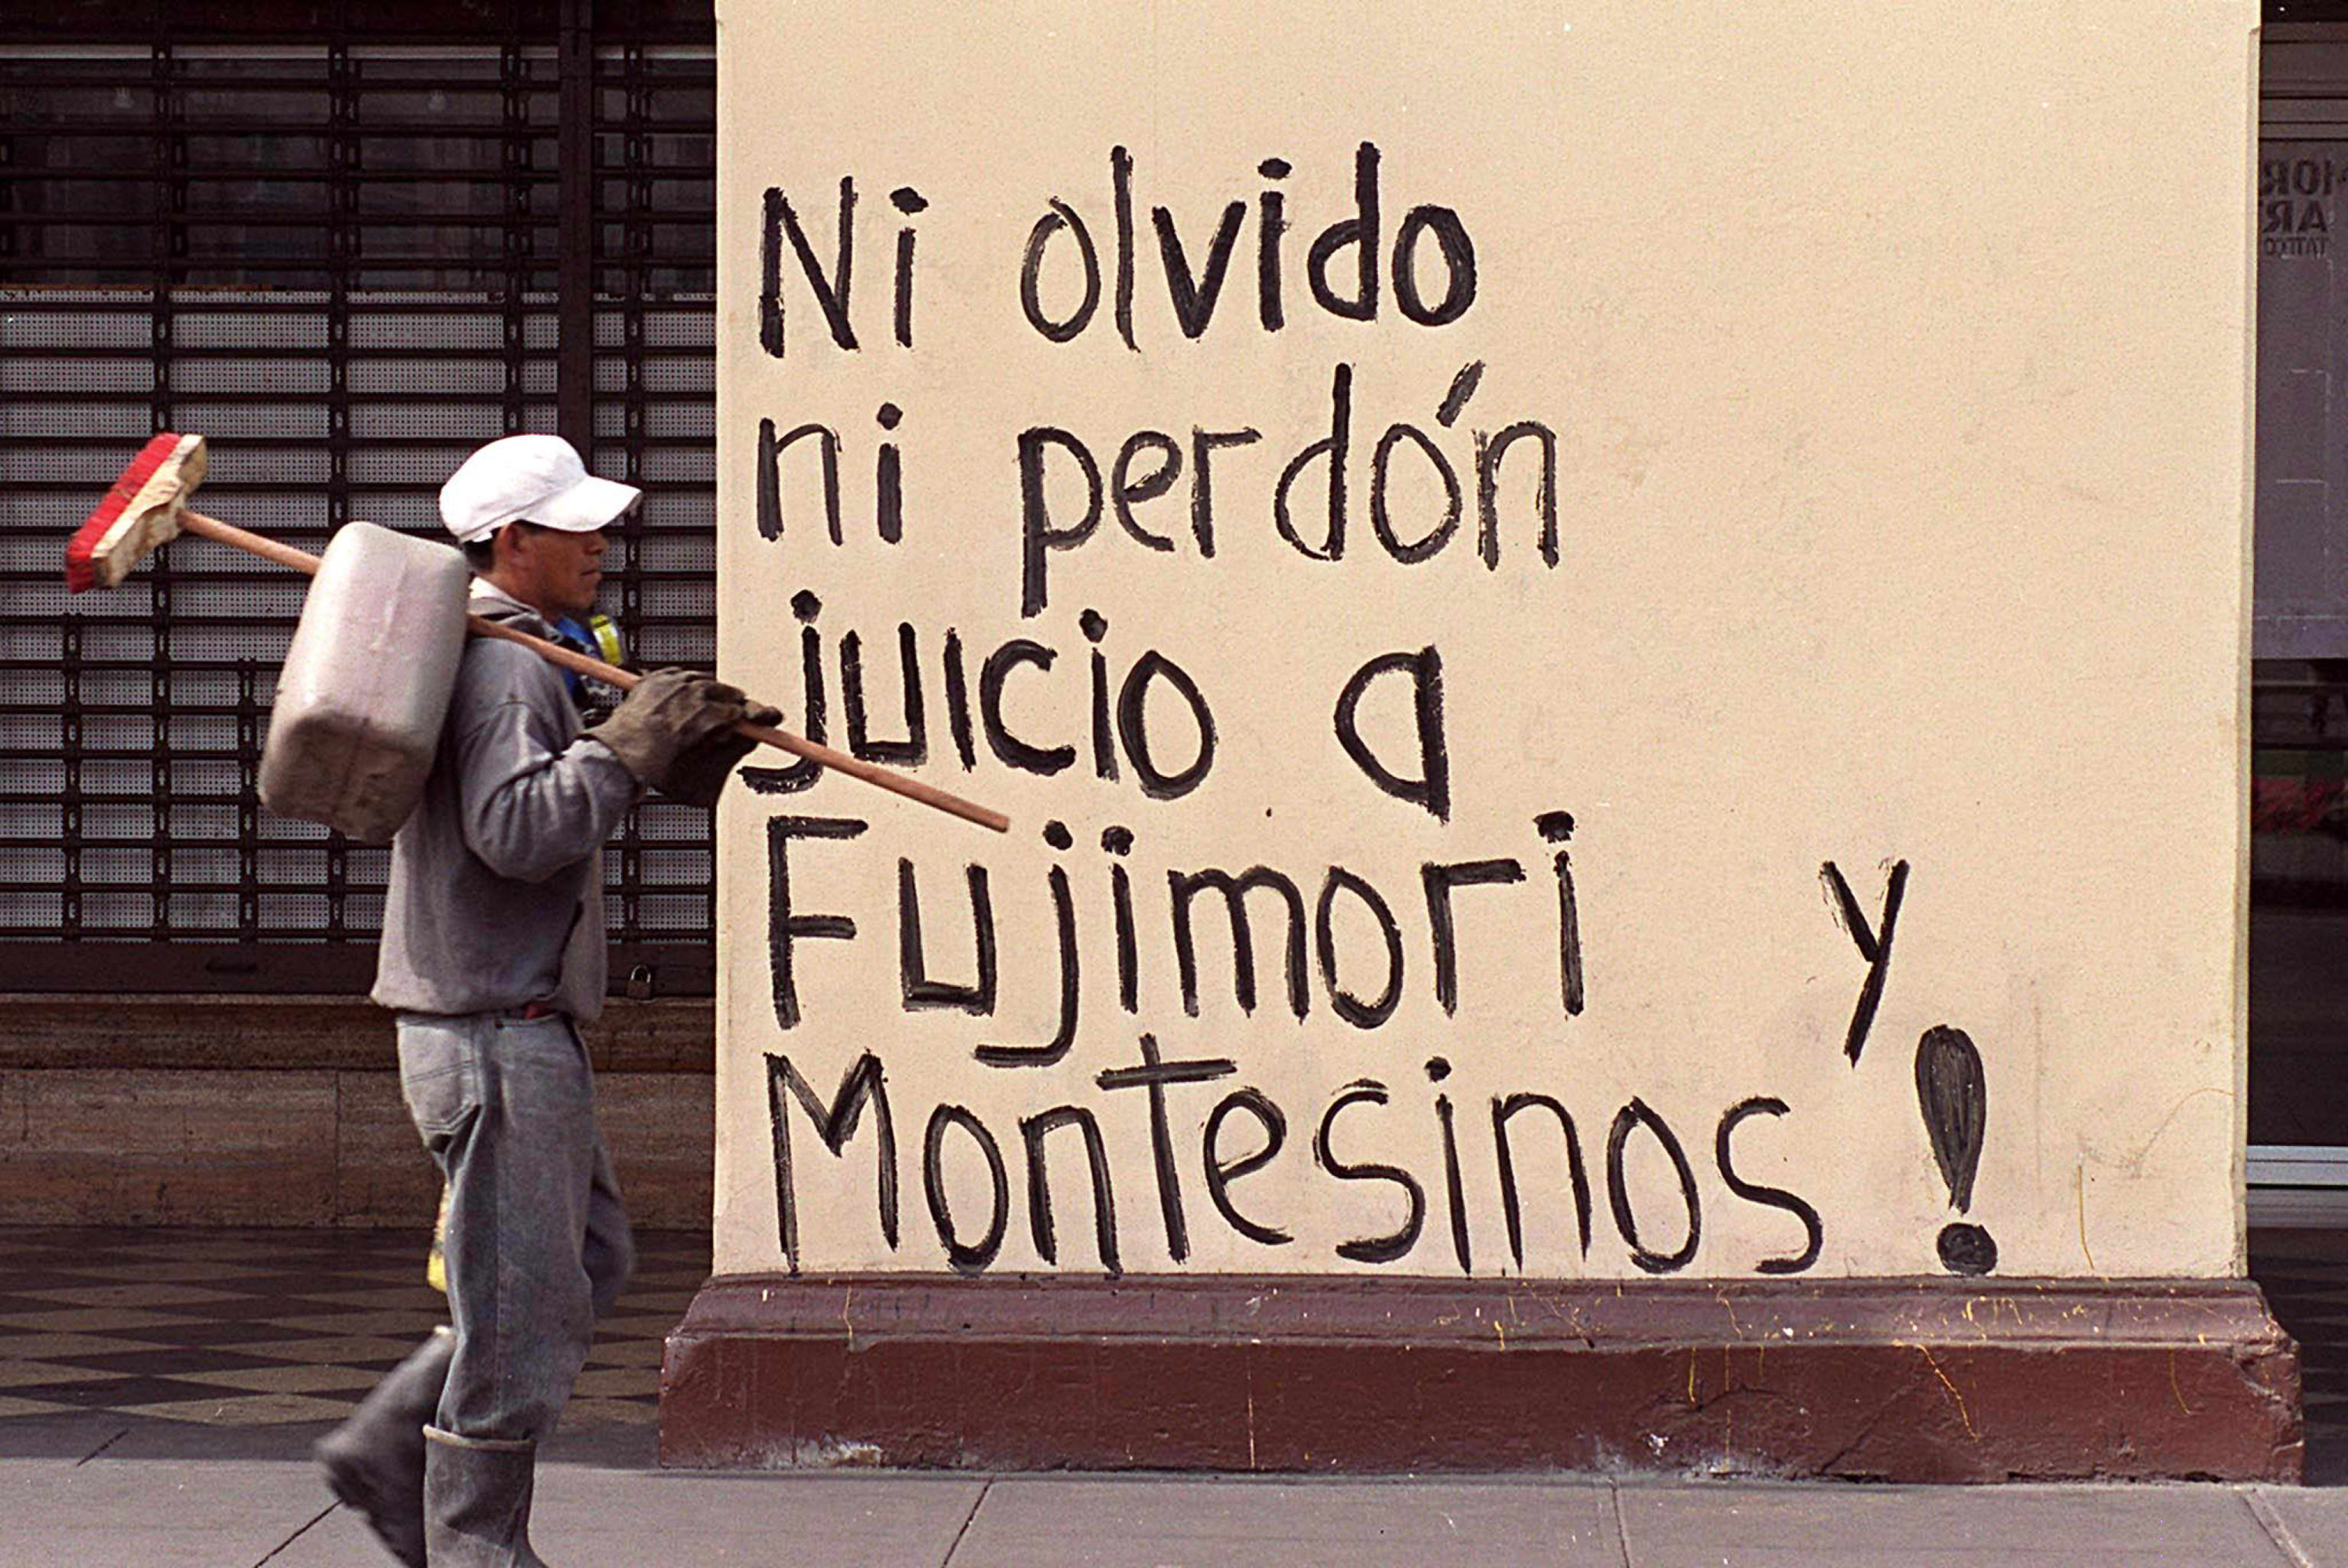 Ni olvido
ni perdón
juicio a
Fujimori y
Montesinos !